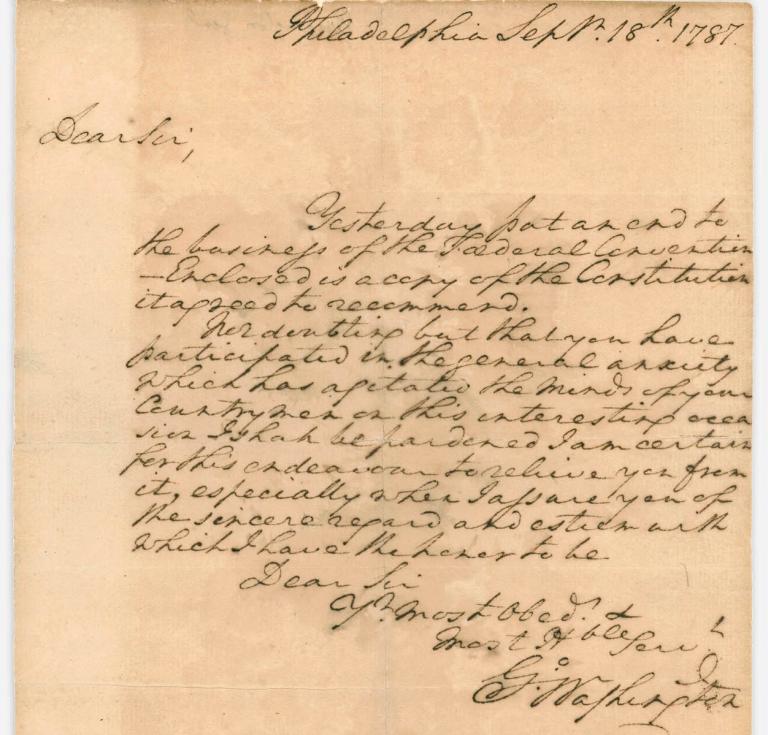 Philadelphia Sepr. 18th. 1787.
Dear Sir,
Yesterday put an end to
the business of the Fœderal Convention
—Enclosed is a copy of the Constitution
it agreed to recommend.
Not doubting but that you have
participated in the general anxiety
which has agitated the minds of your
Countrymen on this interesting occa
sion I shall be pardoned I am certain
for this endeavour to relieve you from
it, especially when I assure you of
the sincere regard and esteem with
which I have the honor to be
Dear Sir
Yr. most Obedt. &
most Hble Servt
Go. Washington